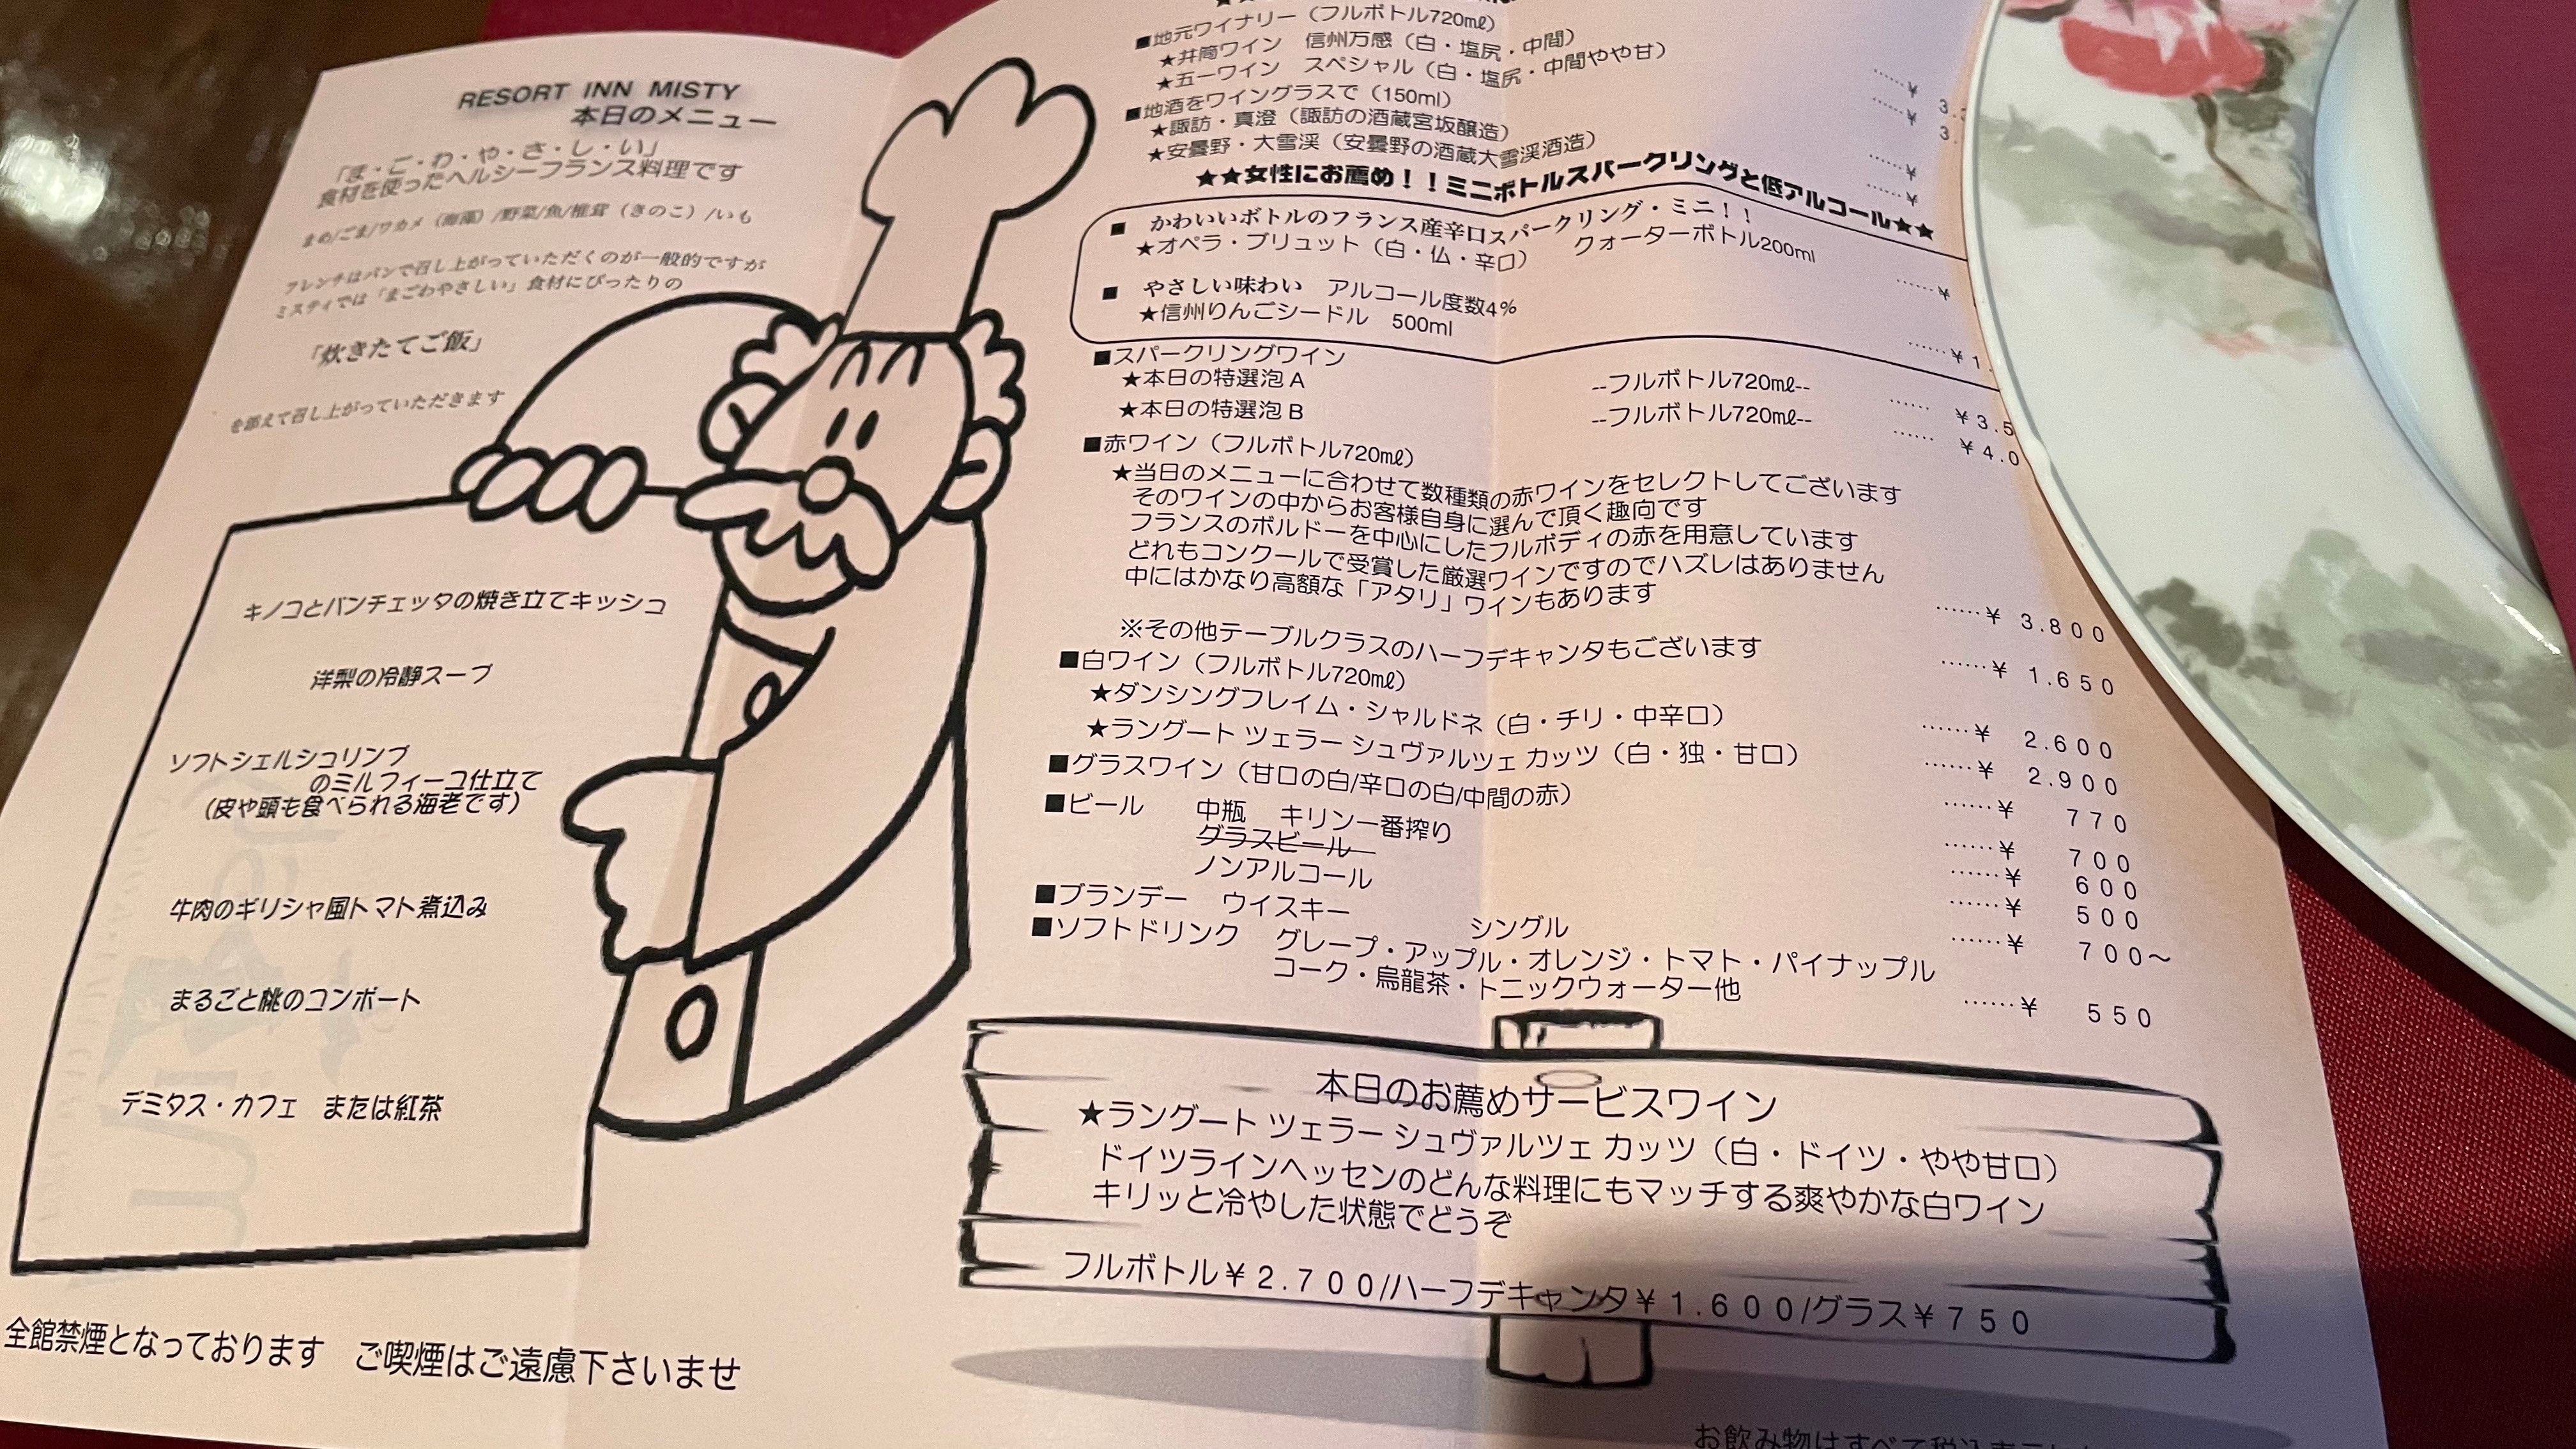 RESORT INN MISTY
本日のメニュー
「ま・ご・わ・や・さ・し・い」
食材を使ったヘルシーフランス料理です
まめ/ごま/ワカメ（海藻）/野菜/魚/椎茸（きのこ）/いも
フレンチはパンで召し上がっていただくのが一般的ですが
ミスティでは「まごわやさしい」食材にぴったりの
「炊きたてご飯」
を添えて召し上がっていただきます
キノコとパンチェッタの焼き立てキッシュ
洋梨の冷静スープ
ソフトシェルシュリンプ
のミルフィーユ仕立て
（皮や頭も食べられる海老です）
牛肉のギリシャ風トマト煮込み
まるごと桃のコンポート
デミタス・カフェ　または紅茶
全館禁煙となっております　ご喫煙はご遠慮下さいませ
■地元ワイナリー（フルボトル720㎖）
★井筒ワイン　信州万感（白・塩尻・中間） ……¥ 3.
★五一ワイン　スペシャル（白・塩尻・中間やや甘） ……¥ 3.
■地酒をワイングラスで（150ml）
★諏訪・真澄（諏訪の酒蔵宮坂醸造） ……¥
★安曇野・大雪渓（安曇野の酒蔵大雪渓酒造） ……¥
★★女性にお薦め！！ミニボトルスパークリングと低アルコール★★
■ かわいいボトルのフランス産辛口スパークリング・ミニ！！
★オペラ・ブリュット（白・仏・辛口）　クォーターボトル200ml ……¥
■ やさしい味わい　アルコール度数4%
★信州りんごシードル　500ml ……¥1.
■スパークリングワイン
★本日の特選泡A　--フルボトル720㎖-- …… ¥3.5
★本日の特選泡B　--フルボトル720㎖-- …… ¥4.0
■赤ワイン（フルボトル720㎖）
★当日のメニューに合わせて数種類の赤ワインをセレクトしてございます
そのワインの中からお客様自身に選んで頂く趣向です
フランスのボルドーを中心にしたフルボディの赤を用意しています
どれもコンクールで受賞した厳選ワインですのでハズレはありません
中にはかなり高額な「アタリ」ワインもあります ……¥ 3.800
※その他テーブルクラスのハーフデキャンタもございます ……¥ 1.650
■白ワイン（フルボトル720㎖）
★ダンシングフレイム・シャルドネ（白・チリ・中辛口） ……¥ 2.600
★ラングート ツェラー シュヴァルツェ カッツ（白・独・甘口） ……¥ 2.900
■グラスワイン（甘口の白/辛口の白/中間の赤） ……¥ 770
■ビール　中瓶　キリン一番搾り ……¥ 700
グラスビール ……¥ 600
ノンアルコール ……¥ 500
■ブランデー　ウイスキー　シングル ……¥ 700～
■ソフトドリンク　グレープ・アップル・オレンジ・トマト・パイナップル
コーク・烏龍茶・トニックウォーター他 ……¥ 550
本日のお薦めサービスワイン
★ラングート ツェラー シュヴァルツェ カッツ（白・ドイツ・やや甘口）
ドイツラインヘッセンのどんな料理にもマッチする爽やかな白ワイン
キリッと冷やした状態でどうぞ
フルボトル¥2.700/ハーフデキャンタ¥1.600/グラス¥750
お飲み物はすべて税込